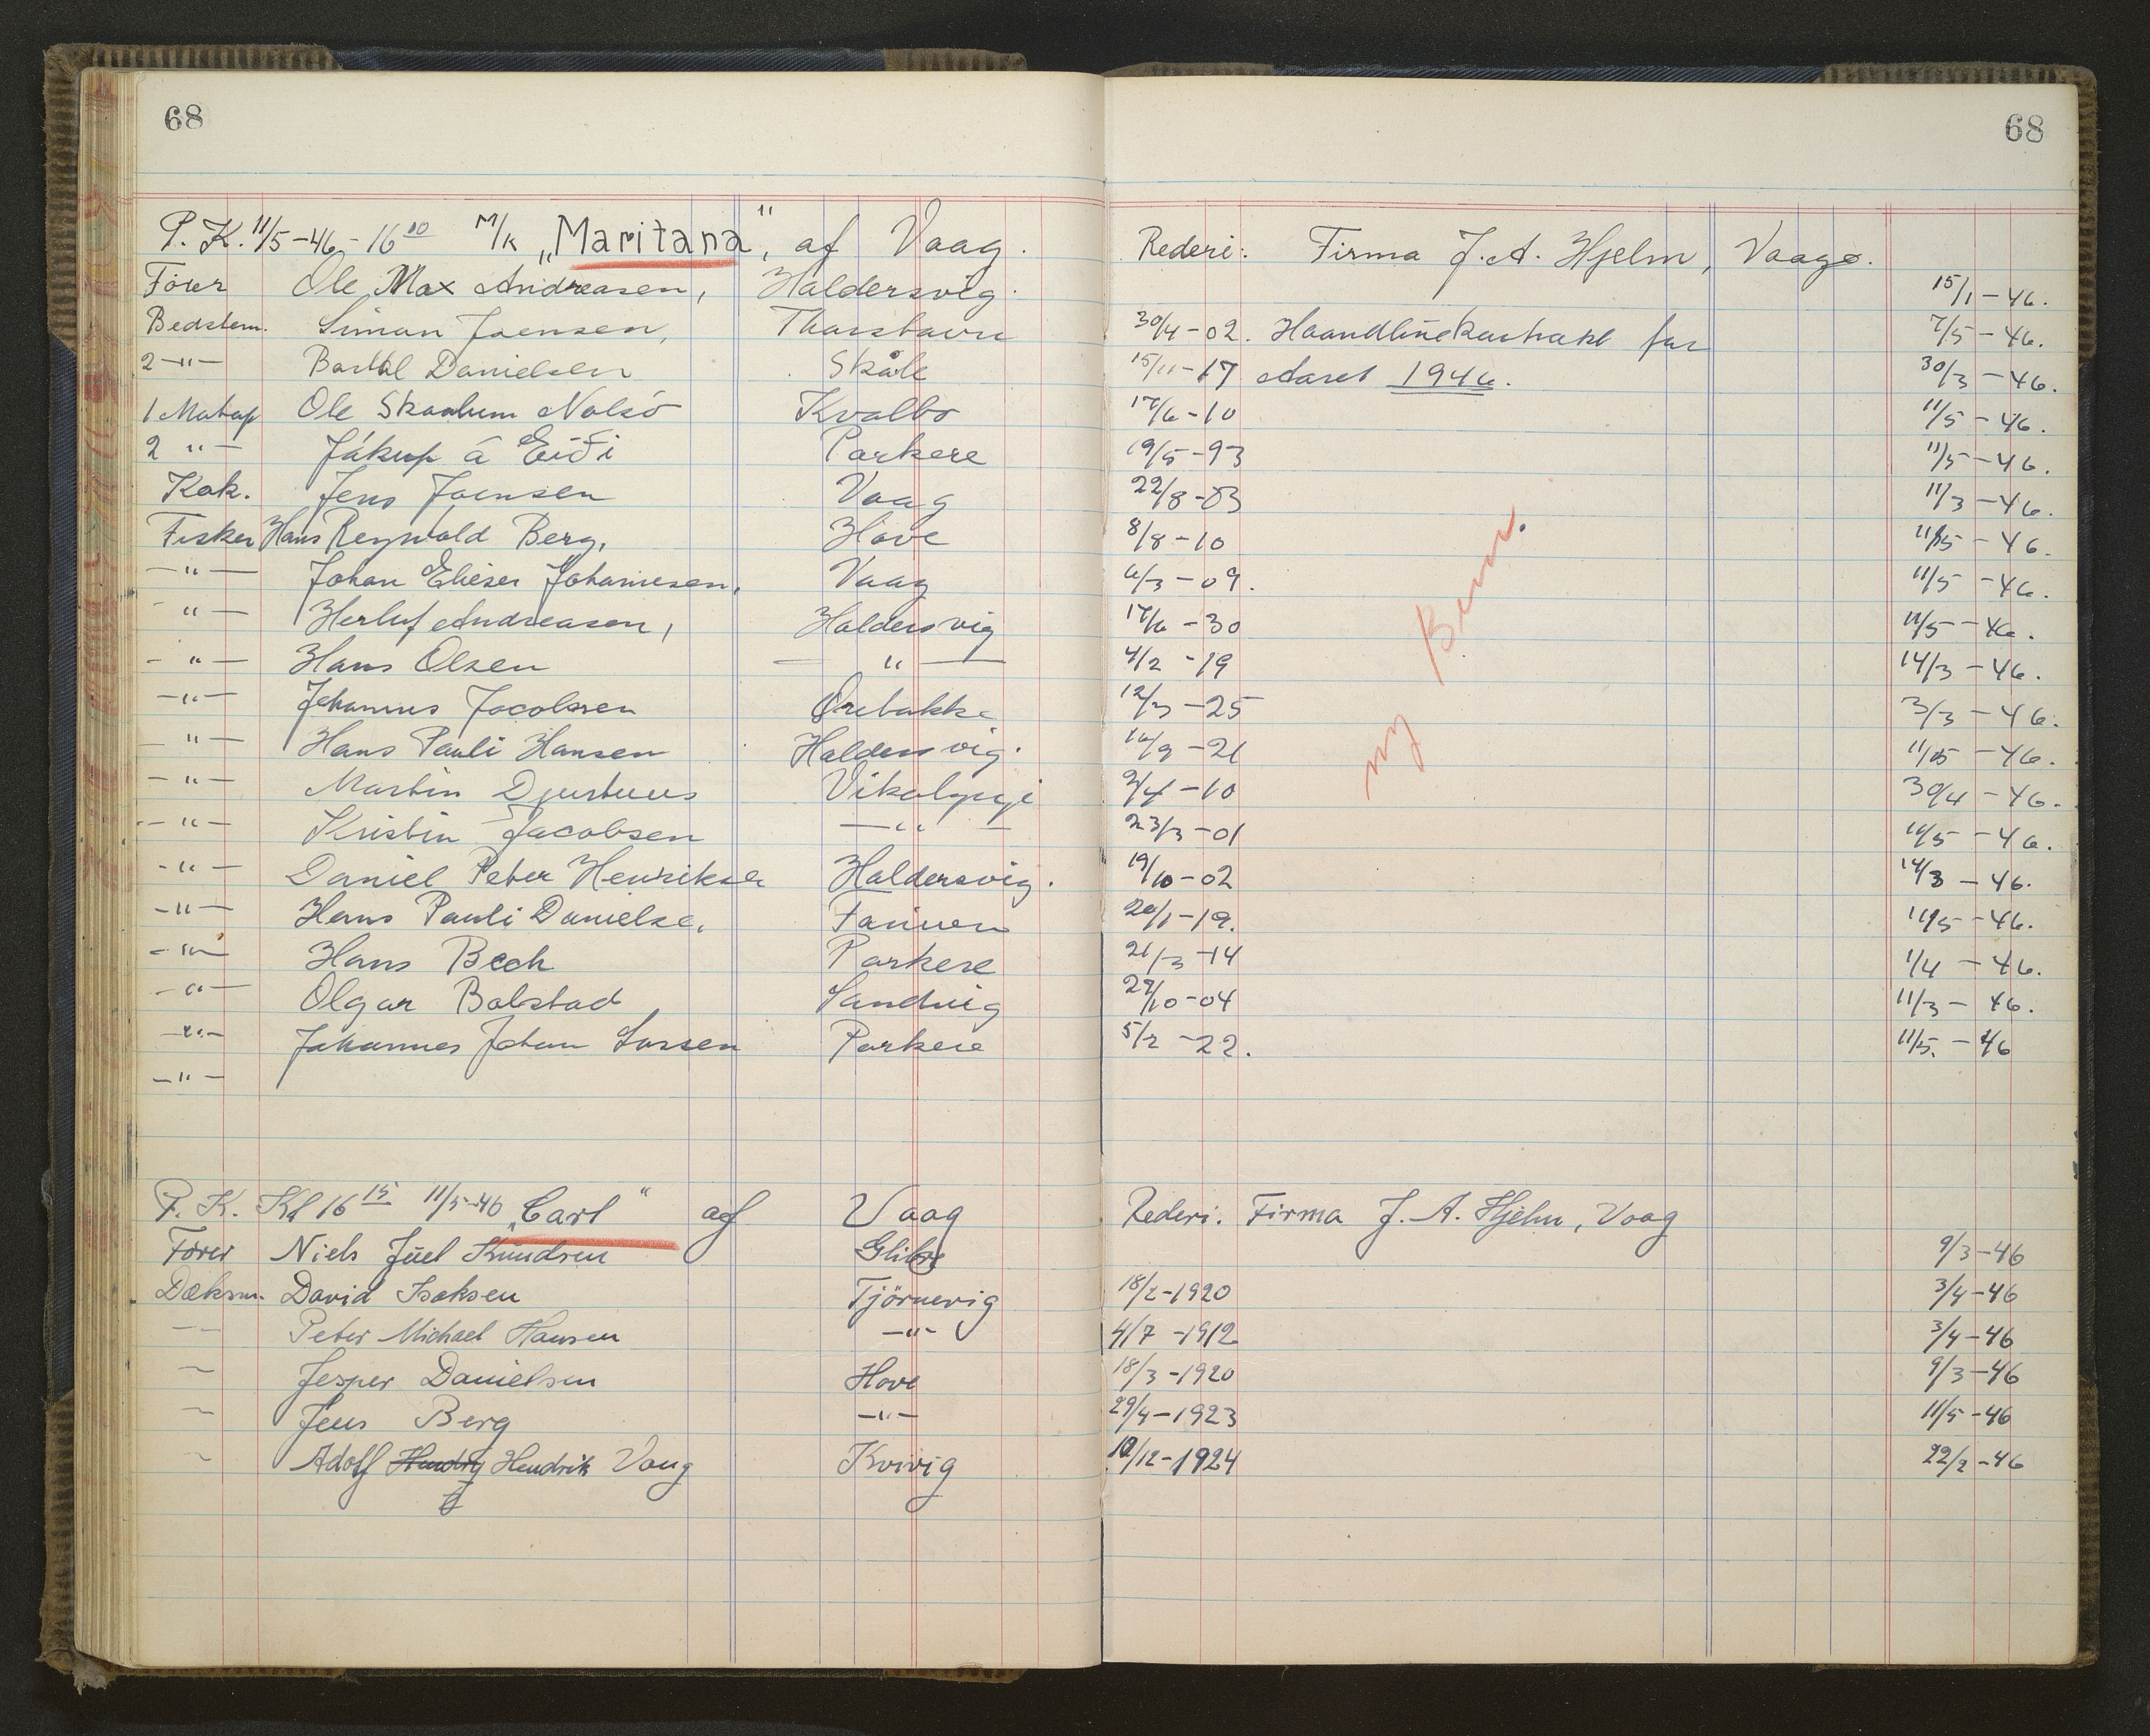 68
68
P. K. 11/5-46- 16 00 M/K „Maritana", af Vaag.
Rederi: Firma J. A. Hjelm, Vaag.
Förer Ole Max Andreasen, Haldersvig. 15/1-46.
Bedstem. Simon Joensen, Thorshavn 30/4-02. Haandlinekontrakt for 7/5-46.
2 -"- Bartal Danielsen Skåle 15/11-17 Aaret 1946. 30/3-46.
1 Matup Ole Skaalum Nolsö Kvalbo 17/6-10 11/5-46.
2 "- Jákup á Eiði Porkere 19/5-93 11/5-46.
Kok. Jens Joensen Vaag 22/8-03 11/3-46.
Fisker Hans Reynhold Berg, Hove 8/8-10 11/5-46.
-"- Johan Elieser Johannesen, Vaag 6/3-09. 11/5-46.
-"- Herluf Andreasen, Haldersvig 17/6-30 11/5-46.
-"- Hans Olsen -"- 4/2-19 14/3-46.
-"- Johannus Jacobsen Ørebakke 12/3-25 3/3-46.
-"- Hans Pauli Hansen Haldersvig. 16/9-21 11/5-46.
-"- Martin Djurhuus Vikabyrgi 2/4-10 30/4-46.
-"- Kristin Jacobsen -"- 23/3-01 11/5-46.
-"- Daniel Peter Henriksen Haldersvig. 19/10-02 14/3-46.
-"- Hans Pauli Danielse, Famien 20/1-19. 11/5-46.
-"- Hans Bech Porkere 21/3-14 1/4-46.
-"- Olgar Bolstad Sandvig 27/10-04 11/3-46.
-"- Johannes Johan Larsen Porkere 5/2-22. 11/5.-46
-"-
ny Bem.
P. K. Kl 16 15 11/5-46 „Carl" af Vaag
Rederi. Firma J. A. Hjelm, Vaag
Förer Niels Juel Knudsen Glibre 9/3-46
Dæksm. David Isaksen Tjörnevig 18/2-1920 3/4-46
- Peter Michael Hansen -"- 4/7-1912 3/4-46
- Jesper Danielsen Hove 18/3-1920 9/3-46
- Jens Berg -"- 29/4-1923 11/5-46
- Adolf Hendrik Vang Kvivig 10/12-1924 22/2-46